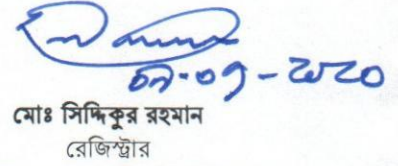 ০৯-০৭-২০২০
মোঃ সিদ্দিকুর রহমান
রেজিস্ট্রার